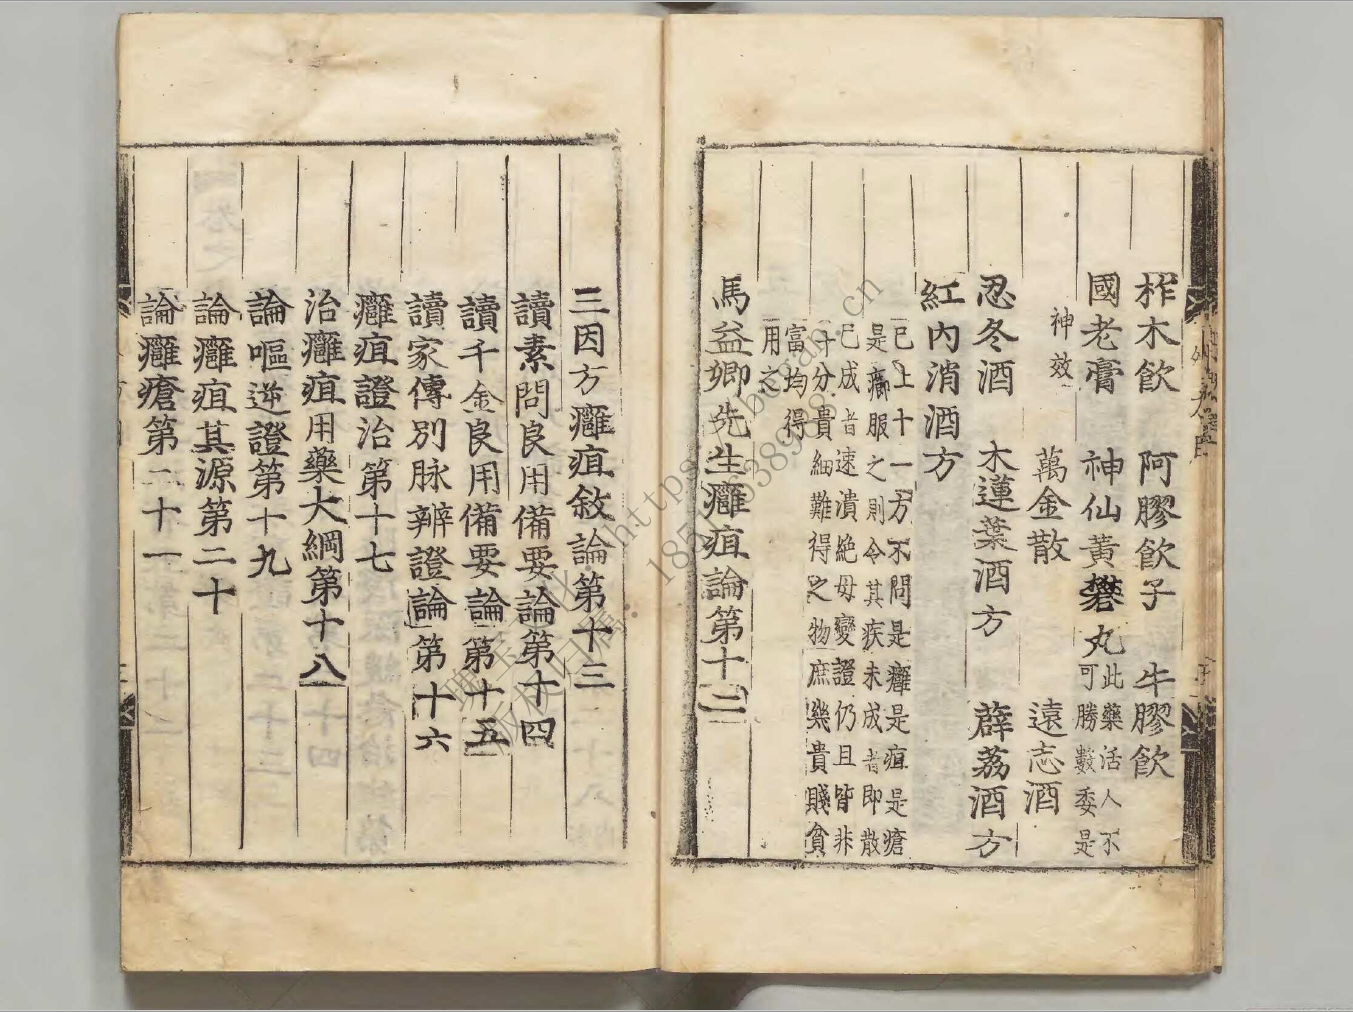 柞木飲 阿膠飲子 牛膠飲
國老膏 神仙黃礬丸 此藥活人不
可勝數委是
神效 萬金散 遠志酒
忍冬酒 木蓮葉酒方 薜荔酒方
紅內消酒方
已上十一方不問是癰是疽是瘡
是癤服之則令其疾未成者即散
已成者速潰絕毋變證仍且皆非
十分貴細難得之物庶幾貴賤貧
富均得
用之
馬益卿先生癰疽論第十二
三因方癰疽敘論第十三
讀素問良用備要論第十四
讀千金良用備要論第十五
讀家傳別脉辨證論第十六
癰疽證治第十七
治癰疽用藥大綱第十八
論嘔逆證第十九
論癰疽其源第二十
論癰瘡第二十一